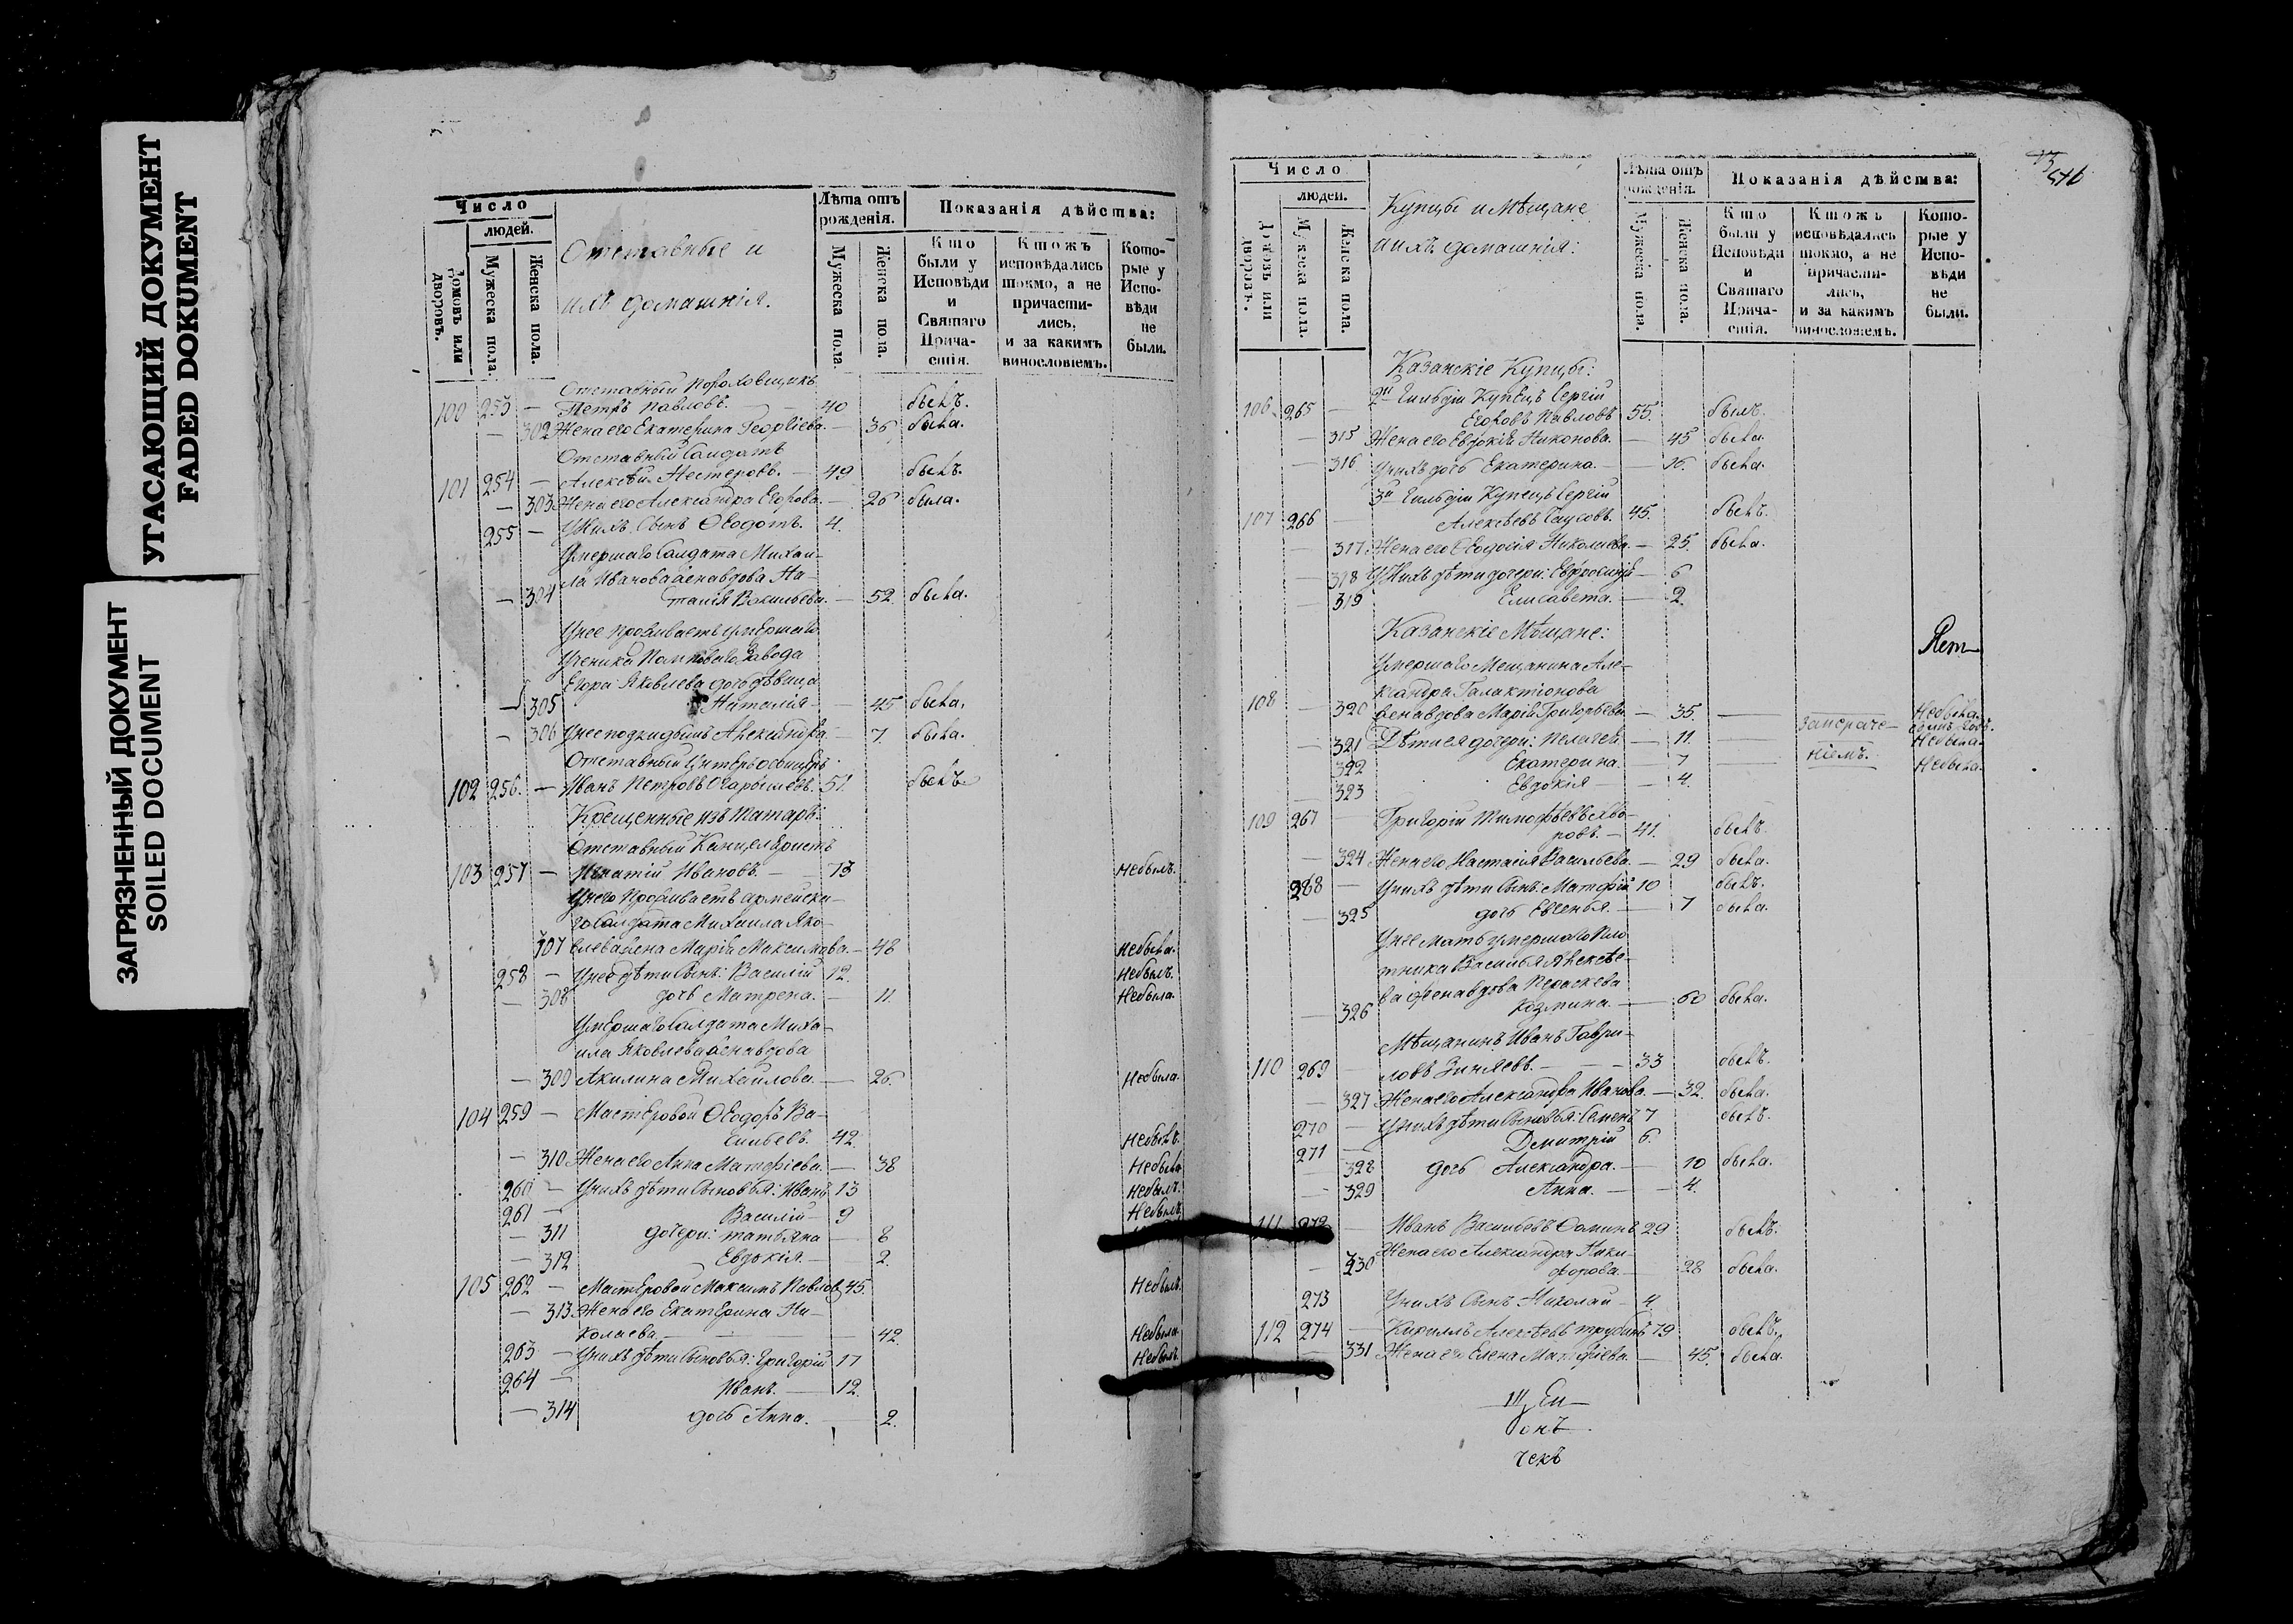 УГАСАЮЩИЙ ДОКУМЕНТ
FADED DOKUMENT
ЗАГРЯЗНЕННЫЙ ДОКУМЕНТ
SOILED DOCUMENT
Число
людей.
Домовъ или дворовъ.
Мужеска пола.
Женска пола.
Отставные и
ихъ домашнія.
Лѣта отъ рожденія.
Мужеска пола
Женска пола.
Показанія дѣйства:
Кто были у Исповѣди и Святаго Прича-стія.
Ктожъ исповѣдались токмо, а не причасти-лись, и за какимъ винословіемъ.
Кото-рые у Испо-вѣди не были.
Отставный Пороховщикъ
100 253 — Петръ Павловъ. — 40 былъ.
— 302 Жена его Екатерина Георгіева. — 36 была.
Отставный Солдатъ
101 254 — Алексѣй Нестеровъ. — 49 былъ.
— 303 Жена его Александра Егорова. — 26 была.
255 — У нихъ сынъ Ѳеодотъ. 4.
Умершаго Солдата Михаи-
ла Иванова женавдова На-
— 304 талія Васильева. — 52. была.
У нее проживаетъ умершаго
Ученика Завода
Егора Яковлева дочь дѣвица
— 305 Наталія — 45 была.
— 306 У нее подкидышъ Александра. — 7. была.
Отставный Унтеръ
102 256. — Иванъ Петровъ 51. былъ
Крещенные изъ татаръ:
Отставный Канцеляристъ
103 257 — Игнатій Ивановъ. — 73 Небылъ.
У него проживаетъ армейска-
го Солдата Михаила Яко-
307 влева жена Марія Максимова. — 48 Небыла.
258 — У нее дѣти сынъ: Василій 12. Небылъ.
— 308 дочь Матрена. — 11. Небыла.
Умершаго Солдата Миха-
ила Яковлева женавдова
— 309 Акилина Михайлова. — 26. Небыла.
104 259 — Мастеровой Ѳеодоръ Ва-
сильевъ. 42. Небылъ.
— 310 Жена его Анна Матфіева. — 38 Небыла
260 — У нихъ дѣти сыновья: Иванъ 13 Небылъ.
261 — Василій — 9 Небылъ.
— 311 дочери: Татьяна — 8
— 312 Евдокія. — 2.
105 262 — Мастеровой Максимъ Павлов 45. Небылъ.
— 313. Жена его Екатерина Ни-
колаева. — 42. Небыла.
263 — У нихъ дѣти сыновья: Григорій 17 Небылъ.
264 — Иванъ. — 12.
— 314 дочь Анна. — 2.
Число
людей.
Домовъ или дворовъ.
Мужеска пола.
Женска пола.
Купцы и Мѣщане
и ихъ домашнія:
Лѣта отъ рожденія.
Мужеска пола.
Женска пола.
Показанія дѣйства:
Кто были у Исповѣди и Святаго Прича-стія.
Ктожъ исповѣдались токмо, а не причасти-лись, и за какимъ винословіемъ.
Кото-рые у Испо-вѣди не были.
Казанскіе Купцы:
2й Гильдіи Купецъ Сергій
106. 265 — Егоровъ Павловъ 55. былъ.
— 315 Жена его Евдокія Никонова. — 45 была.
— 316 У нихъ дочь Екатерина. — 16. была.
3й Гильдіи Купецъ Сергій
107 266 — Алексѣевъ 45. былъ.
— 317. Жена его Ѳеодосія Николаева. — 25. была.
— 318 У нихъ дѣти дочери: Евфросинія — 6
— 319 Елисавета. — 2.
Казанскіе Мѣщане:
Умершаго Мещанина Але-
ксандра Галактіонова
108 — 320 женавдова Марія Григорьева — 35. — Небыла
— 321 Дѣти ея дочери: Пелагея — 11. — Небыла
322 Екатерина. — 7 — Небыла.
323 Евдокія — 4.
109 267 — Григорій Тимофѣевъ
ровъ. — 41. былъ.
— 324 Жена его Настасія Васильева. — 29 была.
268 — У нихъ дѣти сынъ: Матфій 10 былъ.
— 325 дочь Евгенья. — 7 была.
У нее мать умершаго Пло-
тника Василья Алексѣе-
ва женавдова Параскева
— 326 Козмина. — 60 была.
Мѣщанинъ Иванъ Гаври-
110 269 — ловъ — 33 былъ.
— 327 Жена его Александра Иванова. — 32. была.
270 — У нихъ дѣти сыновья: Семенъ 7 былъ.
271 — Димитрій 6.
— 328 дочь Александра. — 10 была.
— 329 Анна. — 4.
111 272 — Иванъ Васильевъ Ѳоминъ 29 былъ.
Жена его Александра Ники-
— 330 форова. — 28 была.
273 У нихъ сынъ Николай — 4.
112 274 — Кириллъ Алексѣевъ Трубинъ 79 былъ.
— 331 Жена его Елена Матфіева. — 45. была.